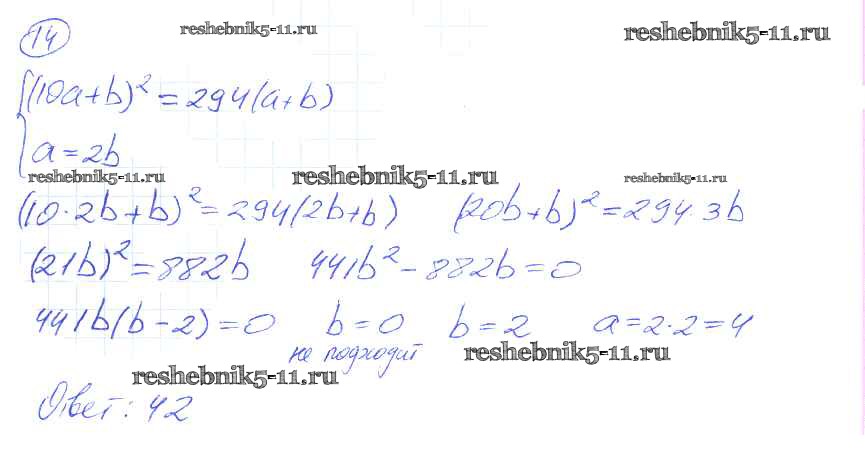 14 reshebnik5-11.ru reshebnik5-11.ru
(10a+b)² = 294(a+b)
a = 2b
reshebnik5-11.ru reshebnik5-11.ru reshebnik5-11.ru
(10·2b+b)² = 294(2b+b) (20b+b)² = 294·3b
(21b)² = 882b 441b² - 882b = 0
441b(b-2) = 0 b = 0 b = 2 a = 2·2 = 4
не подходит reshebnik5-11.ru
reshebnik5-11.ru
Ответ: 42